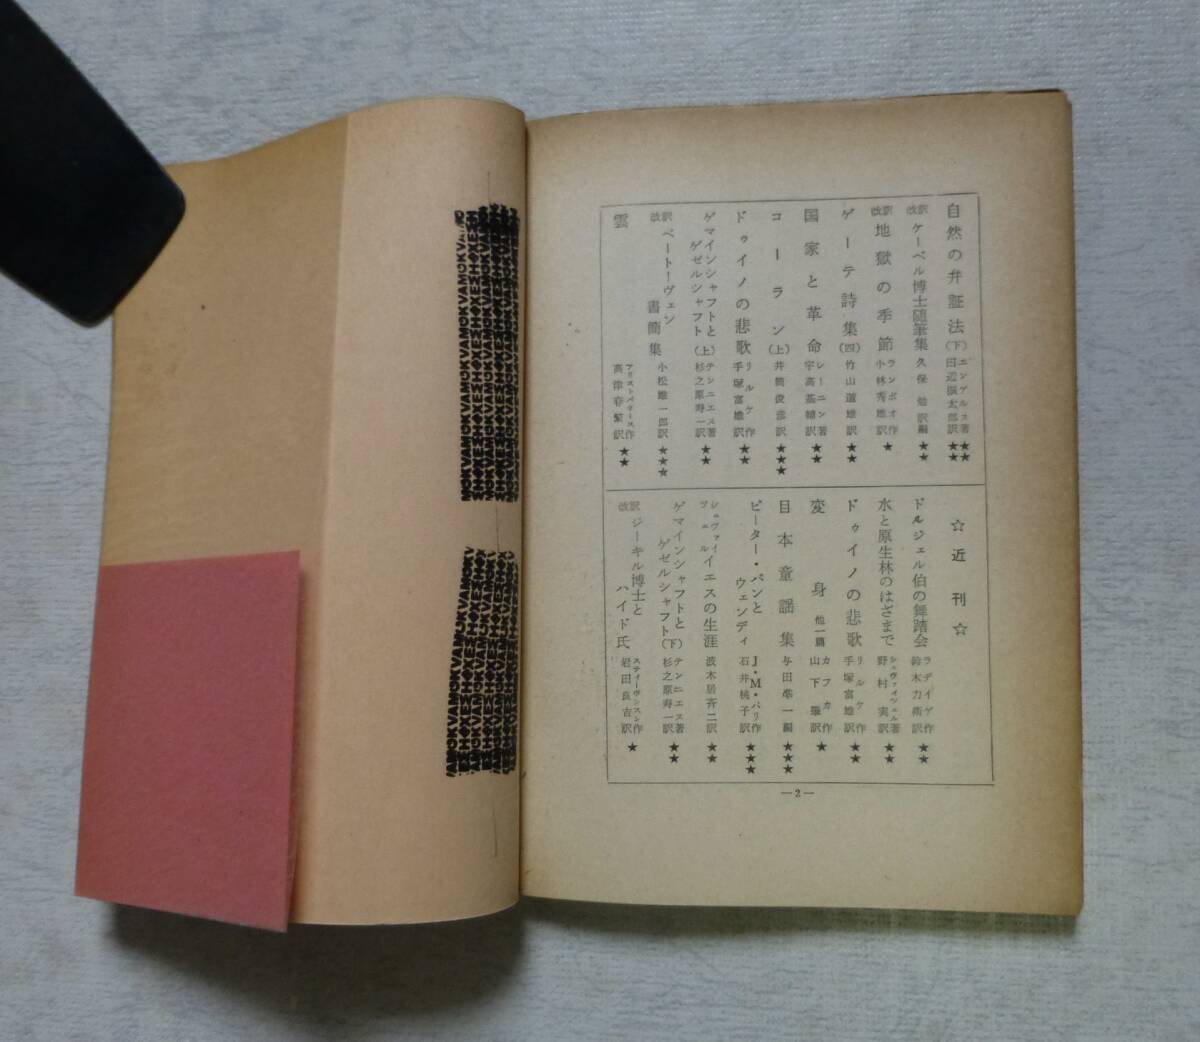 自然の弁証法(下) エンゲルス著 田辺振太郎訳 ★★★★
改訳 ケーベル博士随筆集 久保勉訳編 ★★
改訳 地獄の季節 ランボオ作 小林秀雄訳 ★
ゲーテ詩集(四) 竹山道雄訳 ★★
国家と革命 レーニン著 宇高基輔訳 ★★
コーラン(上) 井筒俊彦訳 ★★★
ドゥイノの悲歌 リルケ作 手塚富雄訳 ★★
ゲマインシャフトとゲゼルシャフト(上) テンニエス著 杉之原寿一訳 ★★
改訳 ベートーヴェン書簡集 小松雄一郎訳 ★★★
雲 アリストパネース作 高津春繁訳 ★★
☆近刊☆
ドルジェル伯の舞踏会 ラディゲ作 鈴木力衛訳 ★★
水と原生林のはざまで シュヴァイツェル著 野村実訳 ★★
ドゥイノの悲歌 リルケ作 手塚富雄訳 ★★
変身 他一篇 カフカ作 山下肇訳 ★
日本童謡集 与田凖一編 ★★★
ピーター・パンとウェンディ J・M・バリ作 石井桃子訳 ★★★
シュヴァイツェル イエスの生涯 波木居斉二訳 ★★
ゲマインシャフトとゲゼルシャフト(下) テンニエス著 杉之原寿一訳 ★★
改訳 ジーキル博士とハイド氏 スティーヴンスン作 岩田良吉訳 ★
—2—